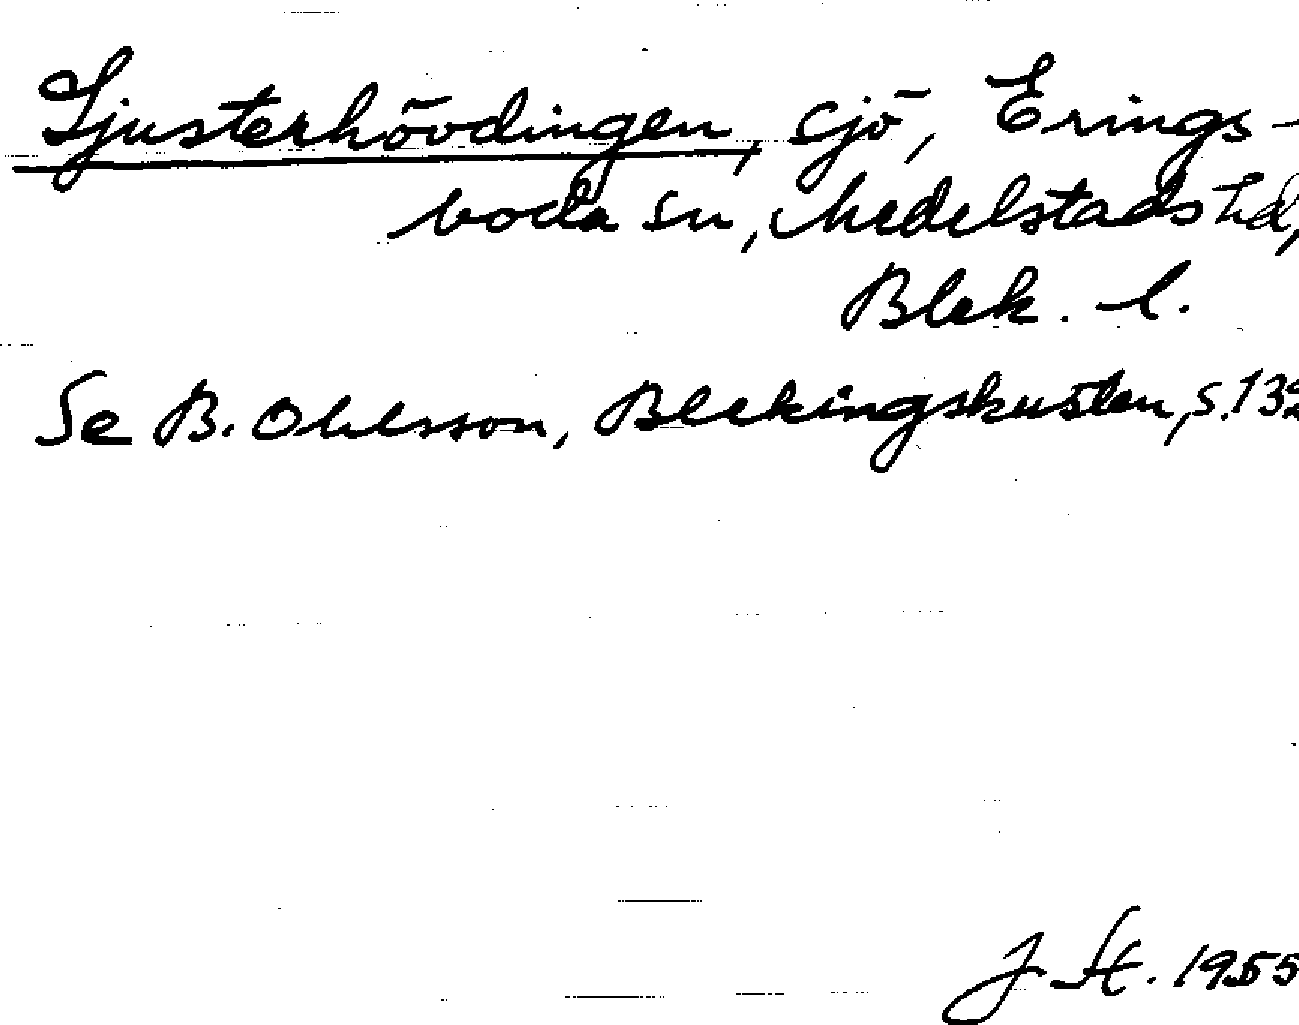 Ljusterhövdingen, sjö, Erings-
boda sn, Medelstads hd,
Blek. l.
Se B. Ohlsson, Blekingskusten, s.
J. St. 1955